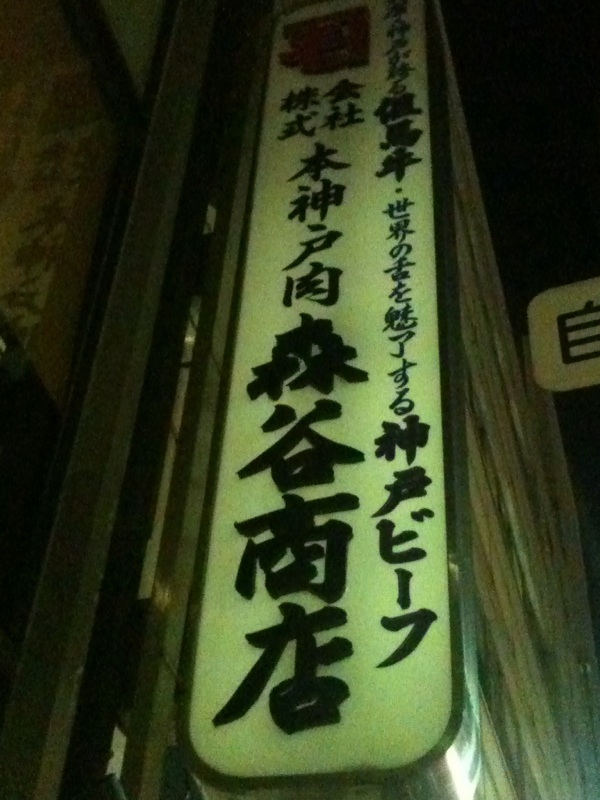 神戸が誇る但馬牛・世界の舌を魅了する神戸ビーフ
株式会社本神戸肉森谷商店
自